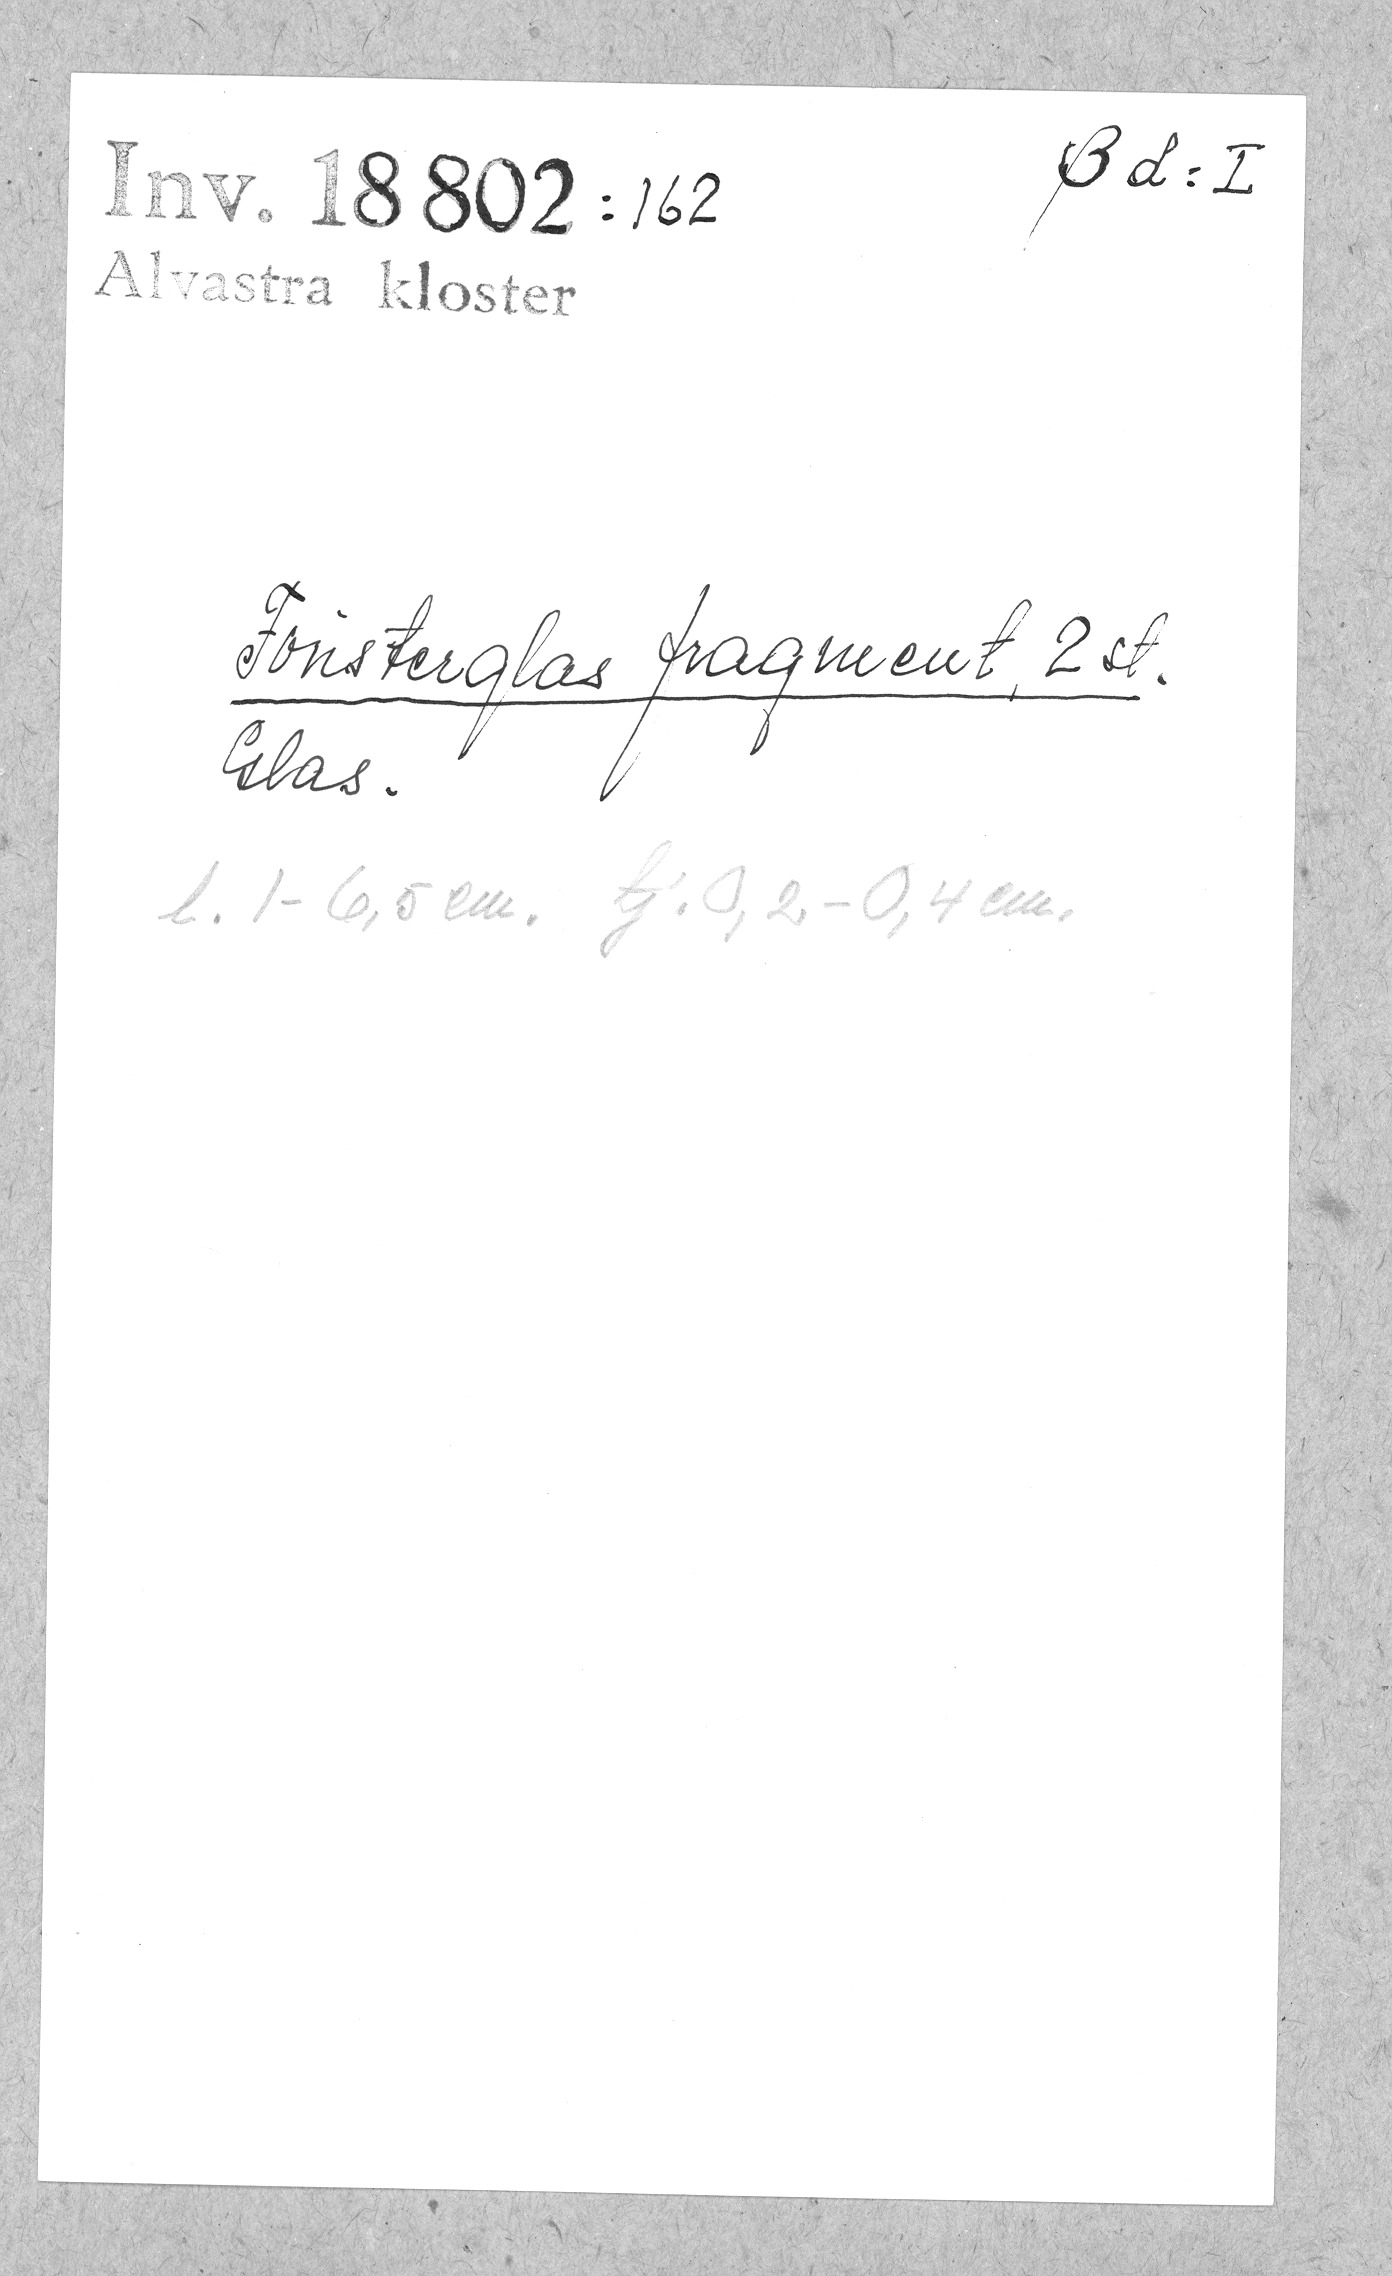 Inv. 18 802:162
β d:I
Alvastra kloster
Fönsterglas fragment, 2 st.
Glas.
l. 1-6,5 cm. tj. 0,2-0,4 cm.